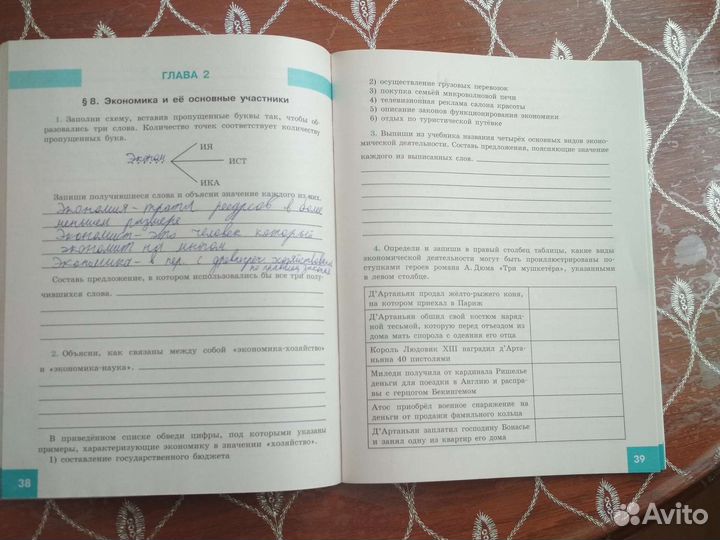 ГЛАВА 2
§ 8. Экономика и её основные участники
1. Заполни схему, вставив пропущенные буквы так, чтобы об-
разовались три слова. Количество точек соответствует количеству
пропущенных букв.
ИЯ
Эконом
ИСТ
ИКА
Запиши получившиеся слова и объясни значение каждого из них.
Экономия - трата ресурсов в более
меньшем размере
Экономист - это человек который
экономит на многом
Экономика - в пер. с древнегреч хозяйствование
по правилам
Составь предложение, в котором использовались бы все три полу-
чившихся слова.
2. Объясни, как связаны между собой «экономика-хозяйство»
и «экономика-наука».
В приведённом списке обведи цифры, под которыми указаны
примеры, характеризующие экономику в значении «хозяйство».
1) составление государственного бюджета
38
2) осуществление грузовых перевозок
3) покупка семьёй микроволновой печи
4) телевизионная реклама салона красоты
5) описание законов функционирования экономики
6) отдых по туристической путёвке
3. Выпиши из учебника названия четырёх основных видов эконо-
мической деятельности. Составь предложения, поясняющие значение
каждого из выписанных слов.
4. Определи и запиши в правый столбец таблицы, какие виды
экономической деятельности могут быть проиллюстрированы по-
ступками героев романа А. Дюма «Три мушкетёра», указанными
в левом столбце.
Д'Артаньян продал жёлто-рыжего коня,
на котором приехал в Париж
Д'Артаньян обшил свой костюм наряд-
ной тесьмой, которую перед отъездом из
дома мать спорола с одеяния его отца
Король Людовик XIII наградил д'Арта-
ньяна 40 пистолями
Миледи получила от кардинала Ришелье
деньги для поездки в Англию и распра-
вы с герцогом Бекингемом
Атос приобрёл военное снаряжение на
деньги от продажи фамильного кольца
Д'Артаньян заплатил господину Бонасье
и занял одну из квартир его дома
39
Avito